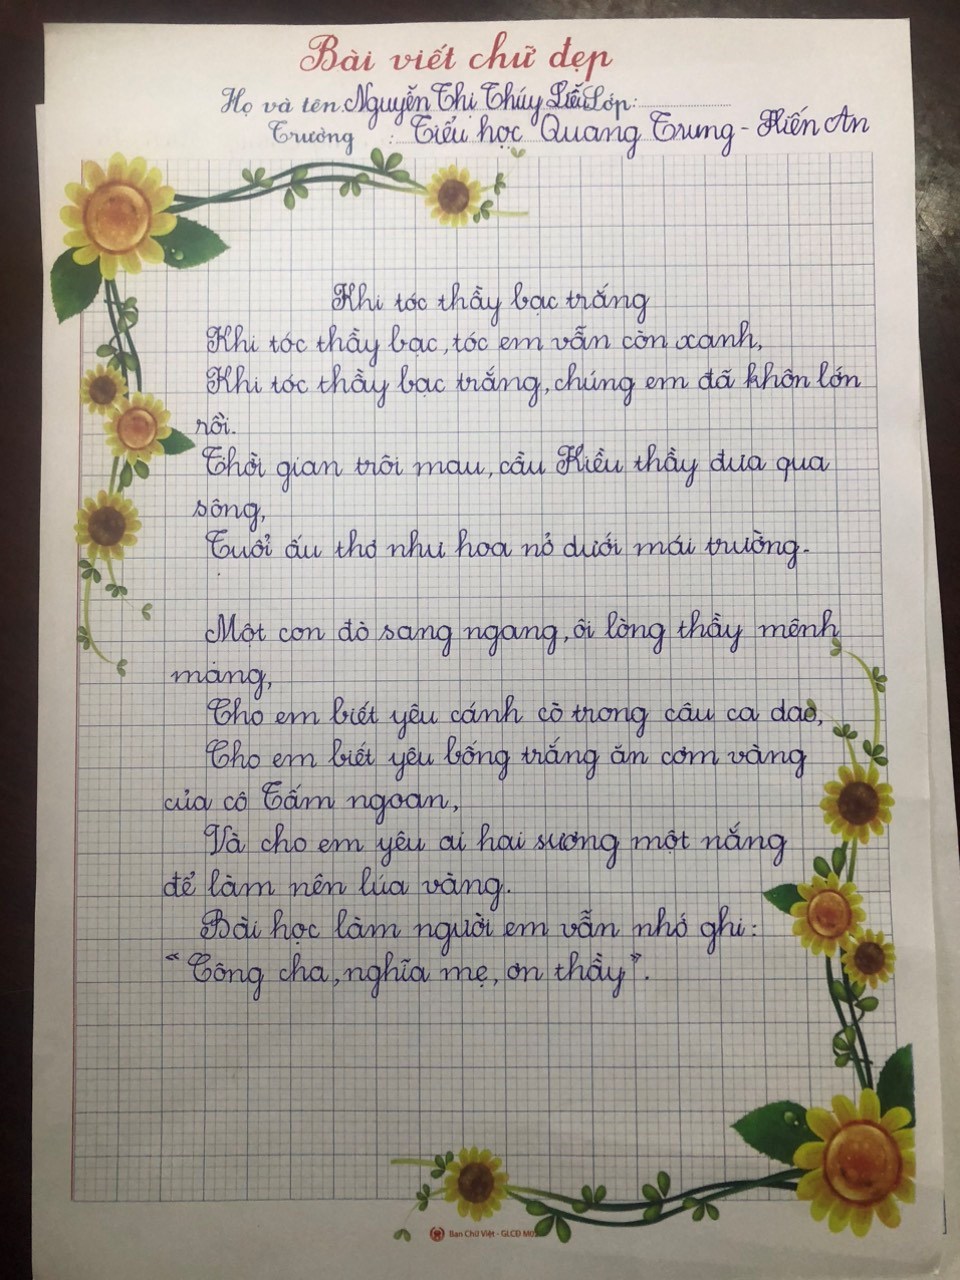 Bài viết chữ đẹp
Họ và tên: Nguyễn Thị Thúy Liễu Lớp:
Trường : Tiểu học Quang Trung - Kiến An
Khi tóc thầy bạc trắng
Khi tóc thầy bạc, tóc em vẫn còn xanh,
Khi tóc thầy bạc trắng, chúng em đã khôn lớn
rồi.
Thời gian trôi mau, cầu Kiều thầy đưa qua
sông,
Tuổi ấu thơ như hoa nở dưới mái trường.
Một con đò sang ngang, ôi lòng thầy mênh
mang,
Cho em biết yêu cánh cò trong câu ca dao,
Cho em biết yêu bống trắng ăn cơm vàng
của cô Tấm ngoan,
Và cho em yêu ai hai sương một nắng
để làm nên lúa vàng.
Bài học làm người em vẫn nhớ ghi:
"Công cha, nghĩa mẹ, ơn thầy".
Ban Chữ Việt - GLCĐ